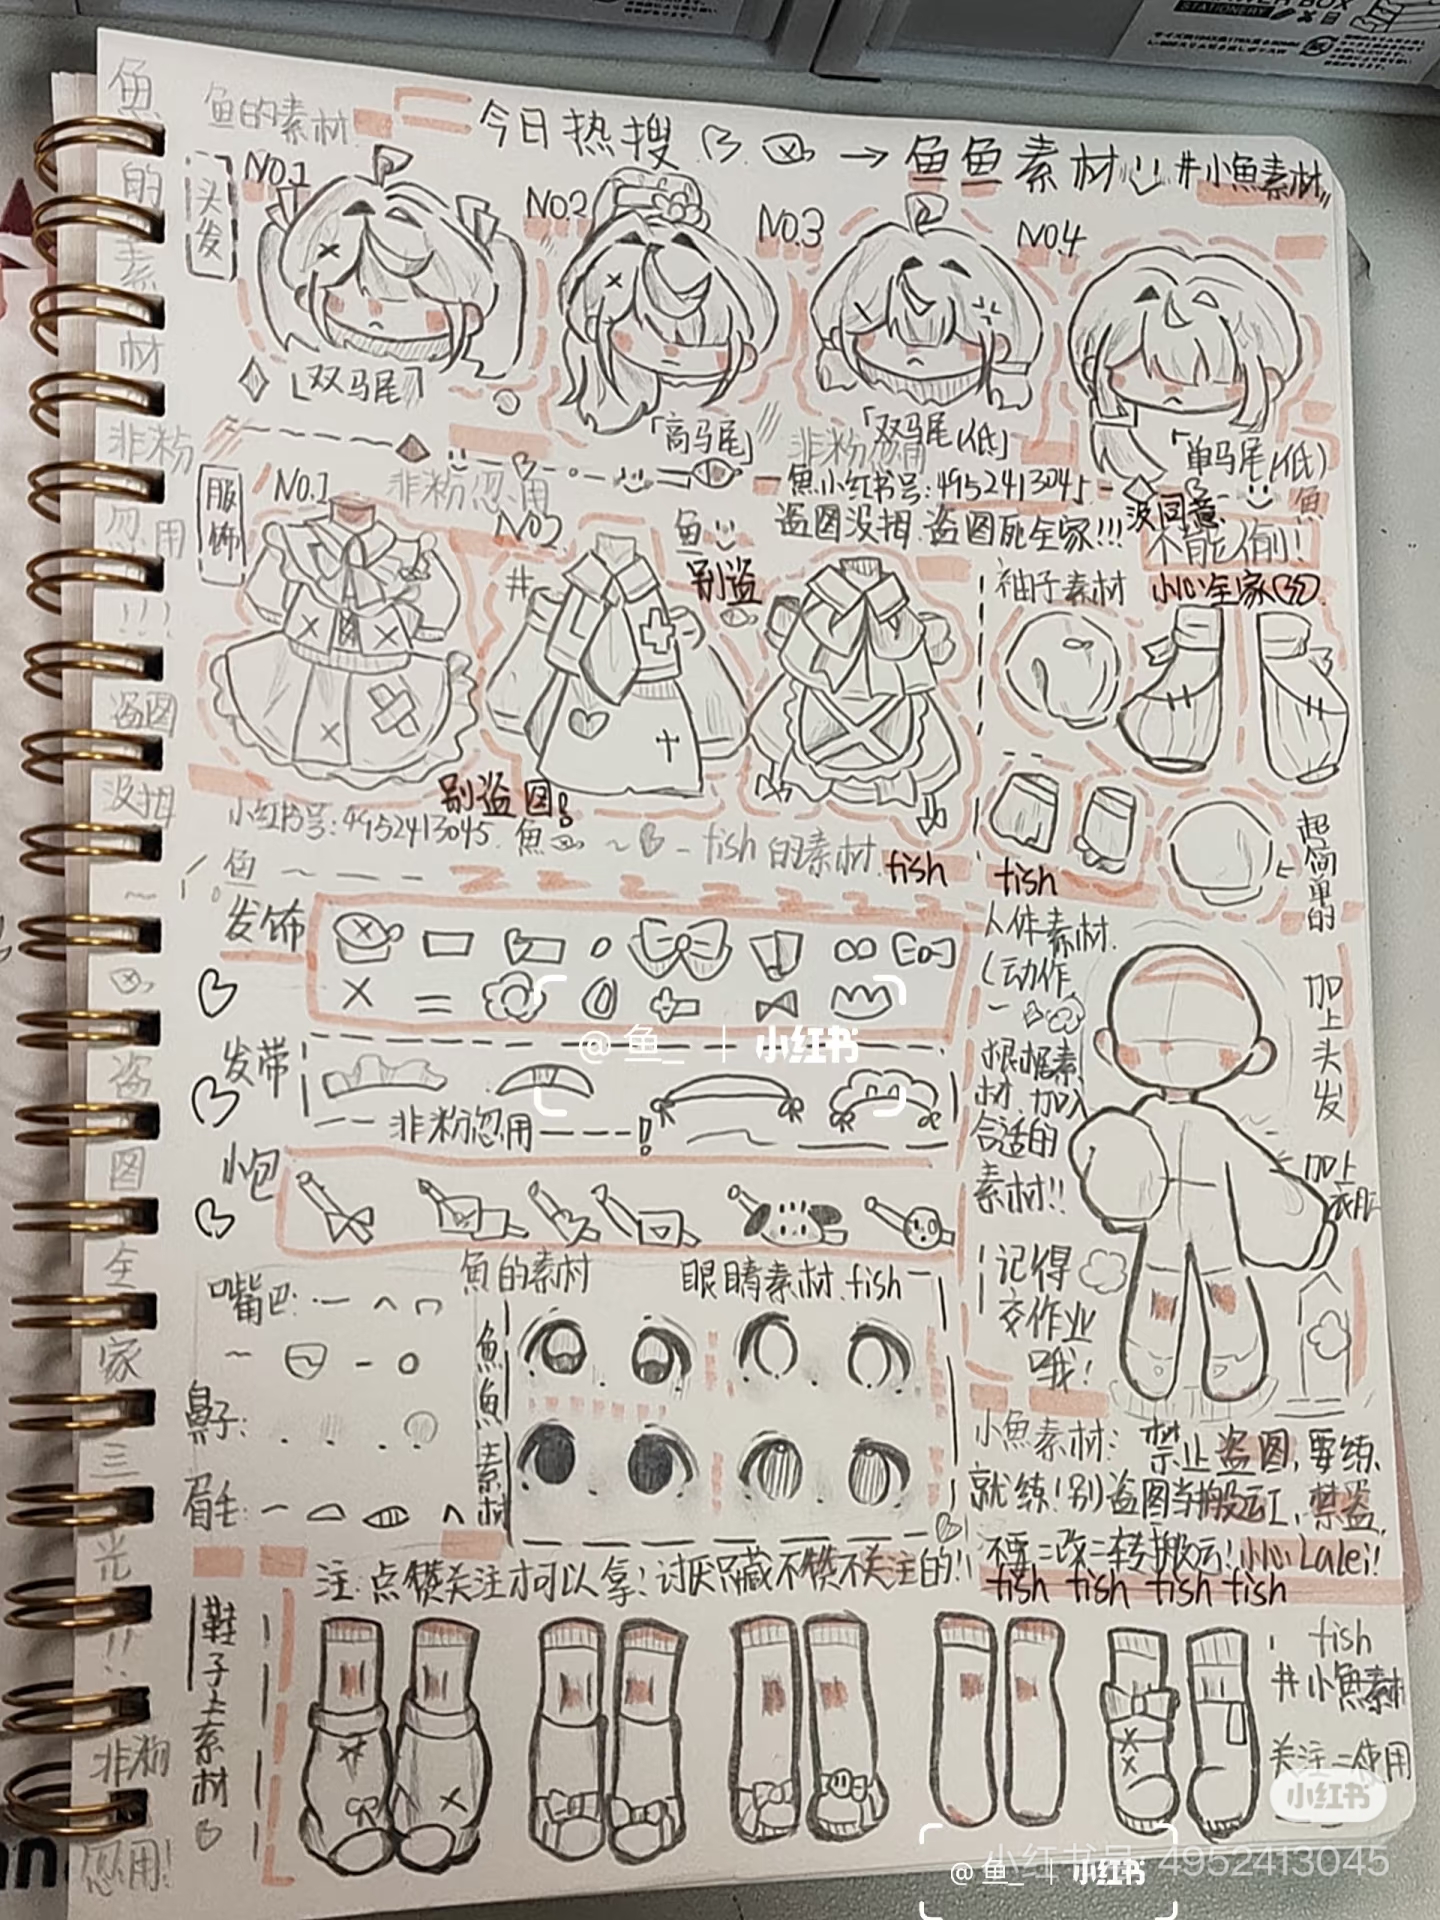 鱼的素材
今日热搜 → 鱼鱼素材 #小魚素材
头发
NO.1
NO.2
NO.3
NO.4
「双马尾」
「高马尾」
「双马尾(低)」
「单马尾(低)」
非粉忽用
魚小红书号:4952413045
盗图没妈 盗图死全家!!!
没同意
不能偷!
服饰
NO.1
非粉忽用
NO.2
鱼
别盗
#
袖子素材
别盗图!
小红书号:4952413045. 魚 ~ fish 的素材 fish
fish
超简单的
鱼
发饰
发带
非粉忽用——!
小包
人体素材
(动作
根据素
材 加入
合适的
素材!!
加上头发
加上衣服
记得
交作业
哦!
@鱼_ | 小红书
魚的素材
眼睛素材.fish
嘴巴:
鼻子:
眉毛:
魚魚素材
小魚素材: 禁止盗图,要练
就练!别盗图当搬运工,禁盗.
不要二改二转搬运!小心Lalei!
fish fish fish fish
注:点赞关注才可以拿!讨厌只藏不赞不关注的!!
鞋子素材
fish
#小魚素材
关注=使用
小红书
小红书号:4952413045
@鱼_ | 小红书
鱼的素材
非粉忽用!!!
盗图没妈
盗图全家三光!!
非粉忽用!